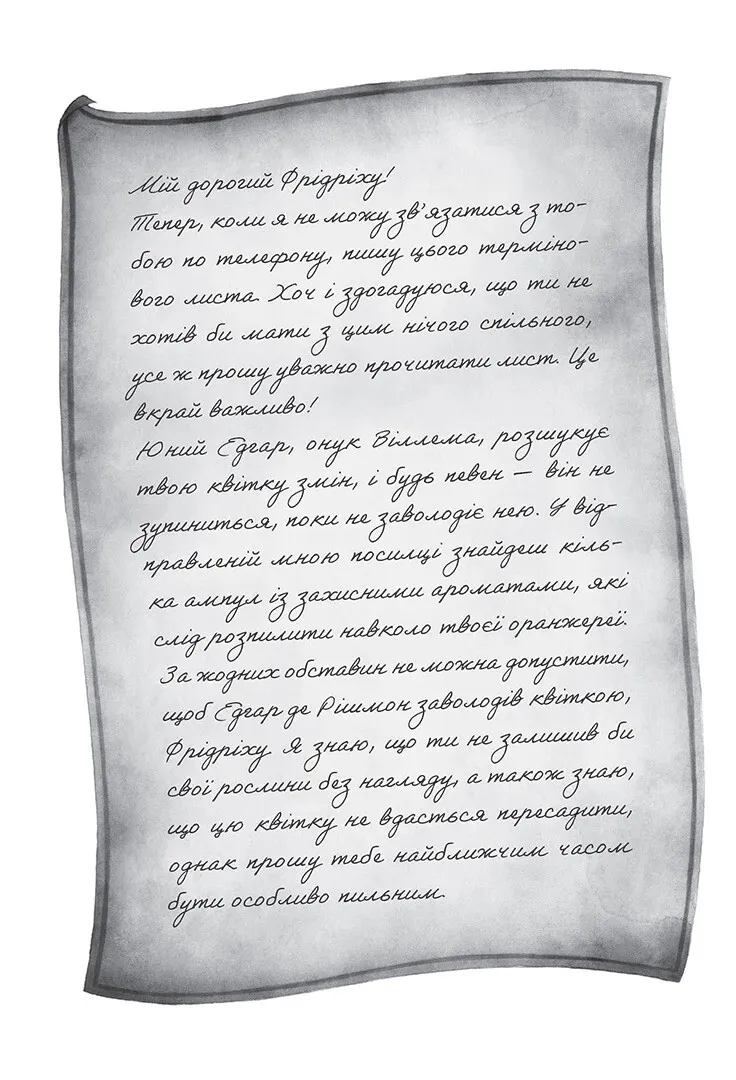 Мій дорогий Фрідріху!
Тепер, коли я не можу зв’язатися з то-
бою по телефону, пишу цього терміно-
вого листа. Хоч і здогадуюся, що ти не
хотів би мати з цим нічого спільного,
усе ж прошу уважно прочитати лист. Це
вкрай важливо!
Юний Едгар, онук Віллема, розшукує
твою квітку змін, і будь певен — він не
зупиниться, поки не заволодіє нею. У від-
правленій мною посилці знайдеш кіль-
ка ампул із захисними ароматами, які
слід розпилити навколо твоєї оранжереї.
За жодних обставин не можна допустити,
щоб Едгар де Рішмон заволодів квіткою,
Фрідріху. Я знаю, що ти не залишив би
свої рослини без нагляду, а також знаю,
що цю квітку не вдасться пересадити,
однак прошу тебе найближчим часом
бути особливо пильним.